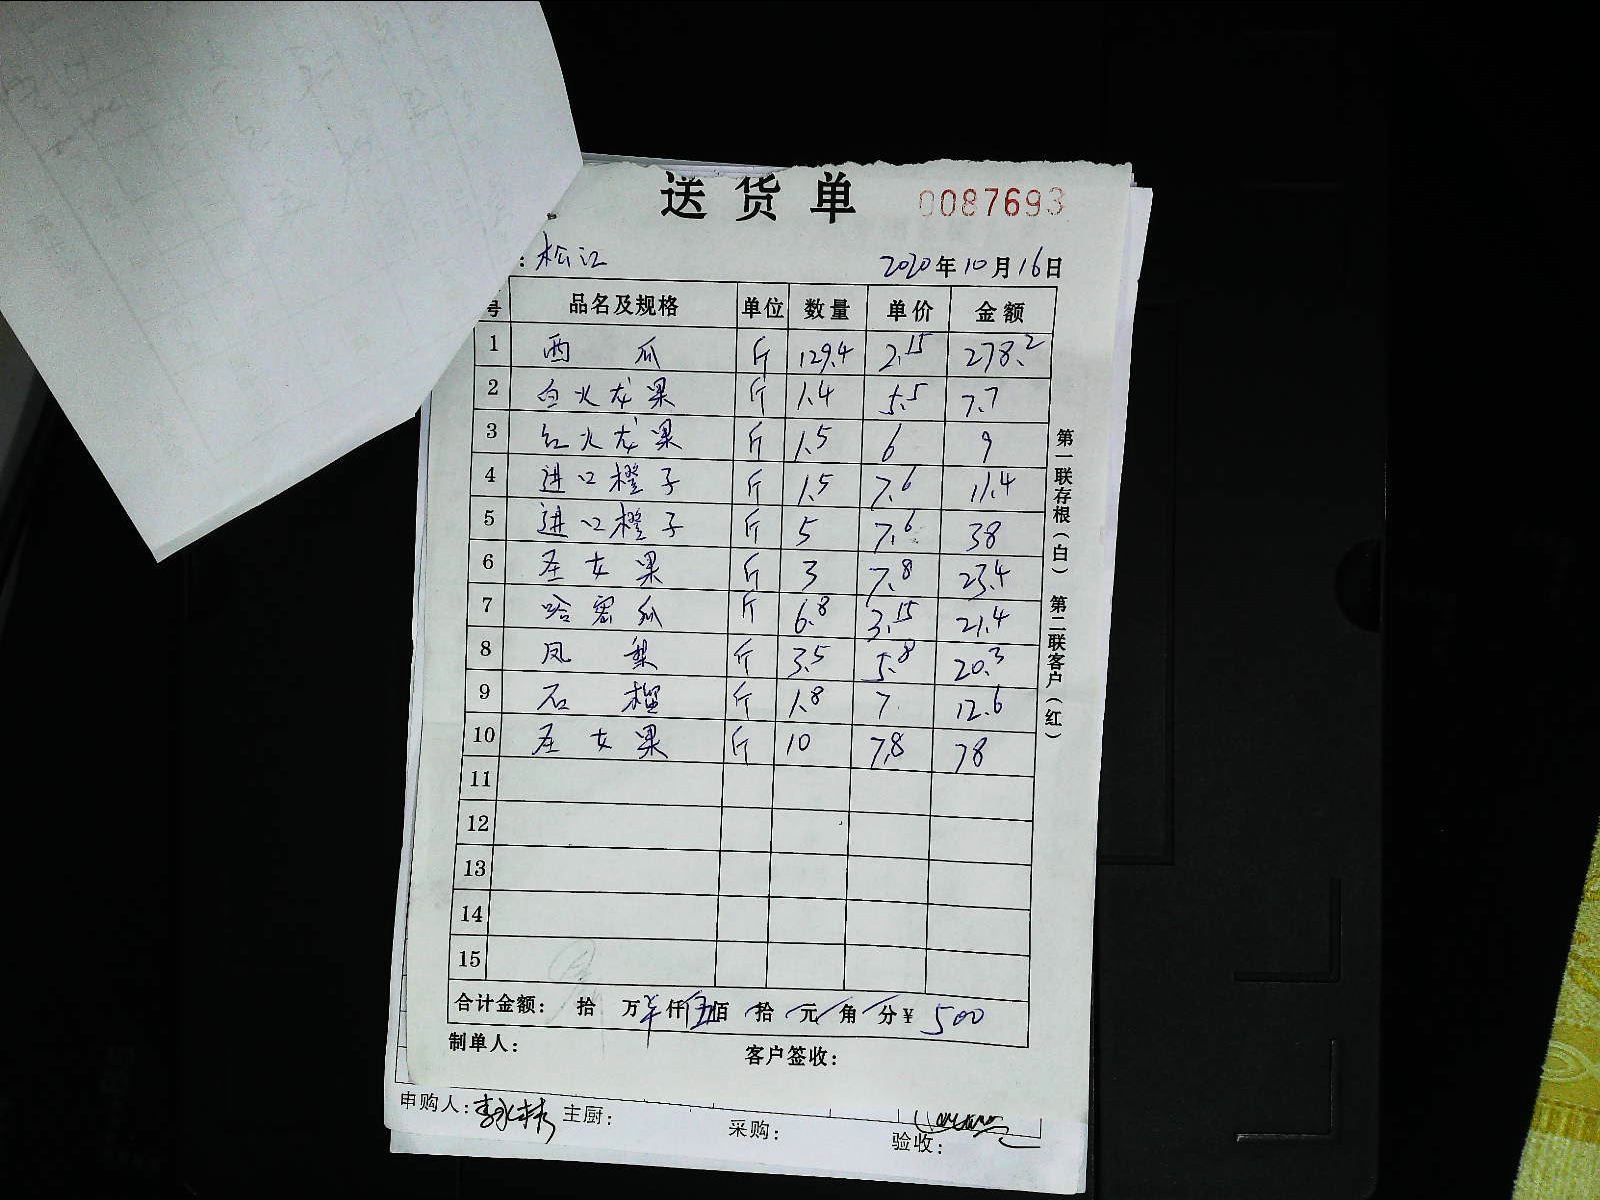 送货单 0087693
：松江 2020年10月16日
号 品名及规格 单位 数量 单价 金额
1 西瓜 斤 129.4 2.15 278.2
2 白火龙果 斤 1.4 5.5 7.7
3 红火龙果 斤 1.5 6 9
4 进口橙子 斤 1.5 7.6 11.4
5 进口橙子 斤 5 7.6 38
6 圣女果 斤 3 7.8 23.4
7 哈密瓜 斤 6.8 3.15 21.4
8 凤梨 斤 3.5 5.8 20.3
9 石榴 斤 1.8 7 12.6
10 圣女果 斤 10 7.8 78
11
12
13
14
15
合计金额： 拾 万 仟伍佰 拾 元 角 分￥ 500
制单人： 客户签收：
第一联存根（白） 第二联客户（红）
申购人： 主厨： 采购： 验收：